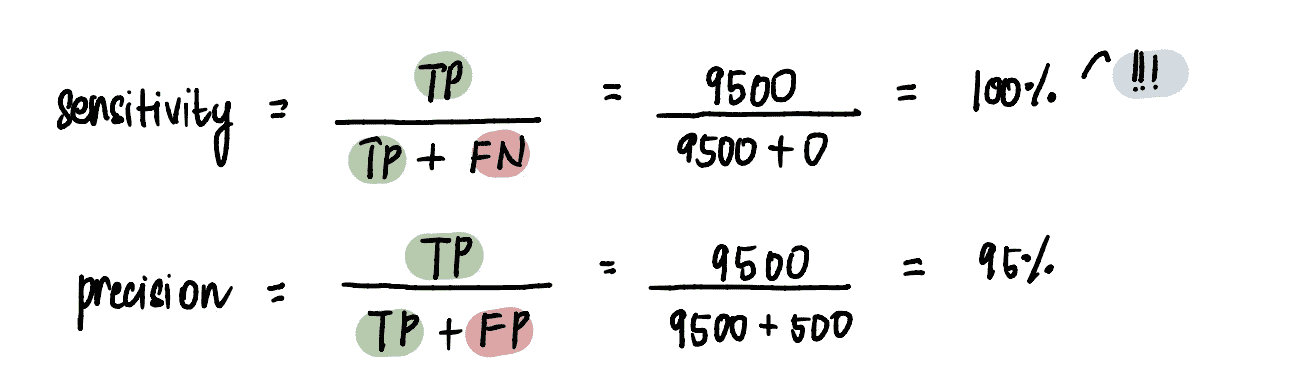 sensitivity = TP / TP + FN = 9500 / 9500 + 0 = 100% !!!
precision = TP / TP + FP = 9500 / 9500 + 500 = 95%